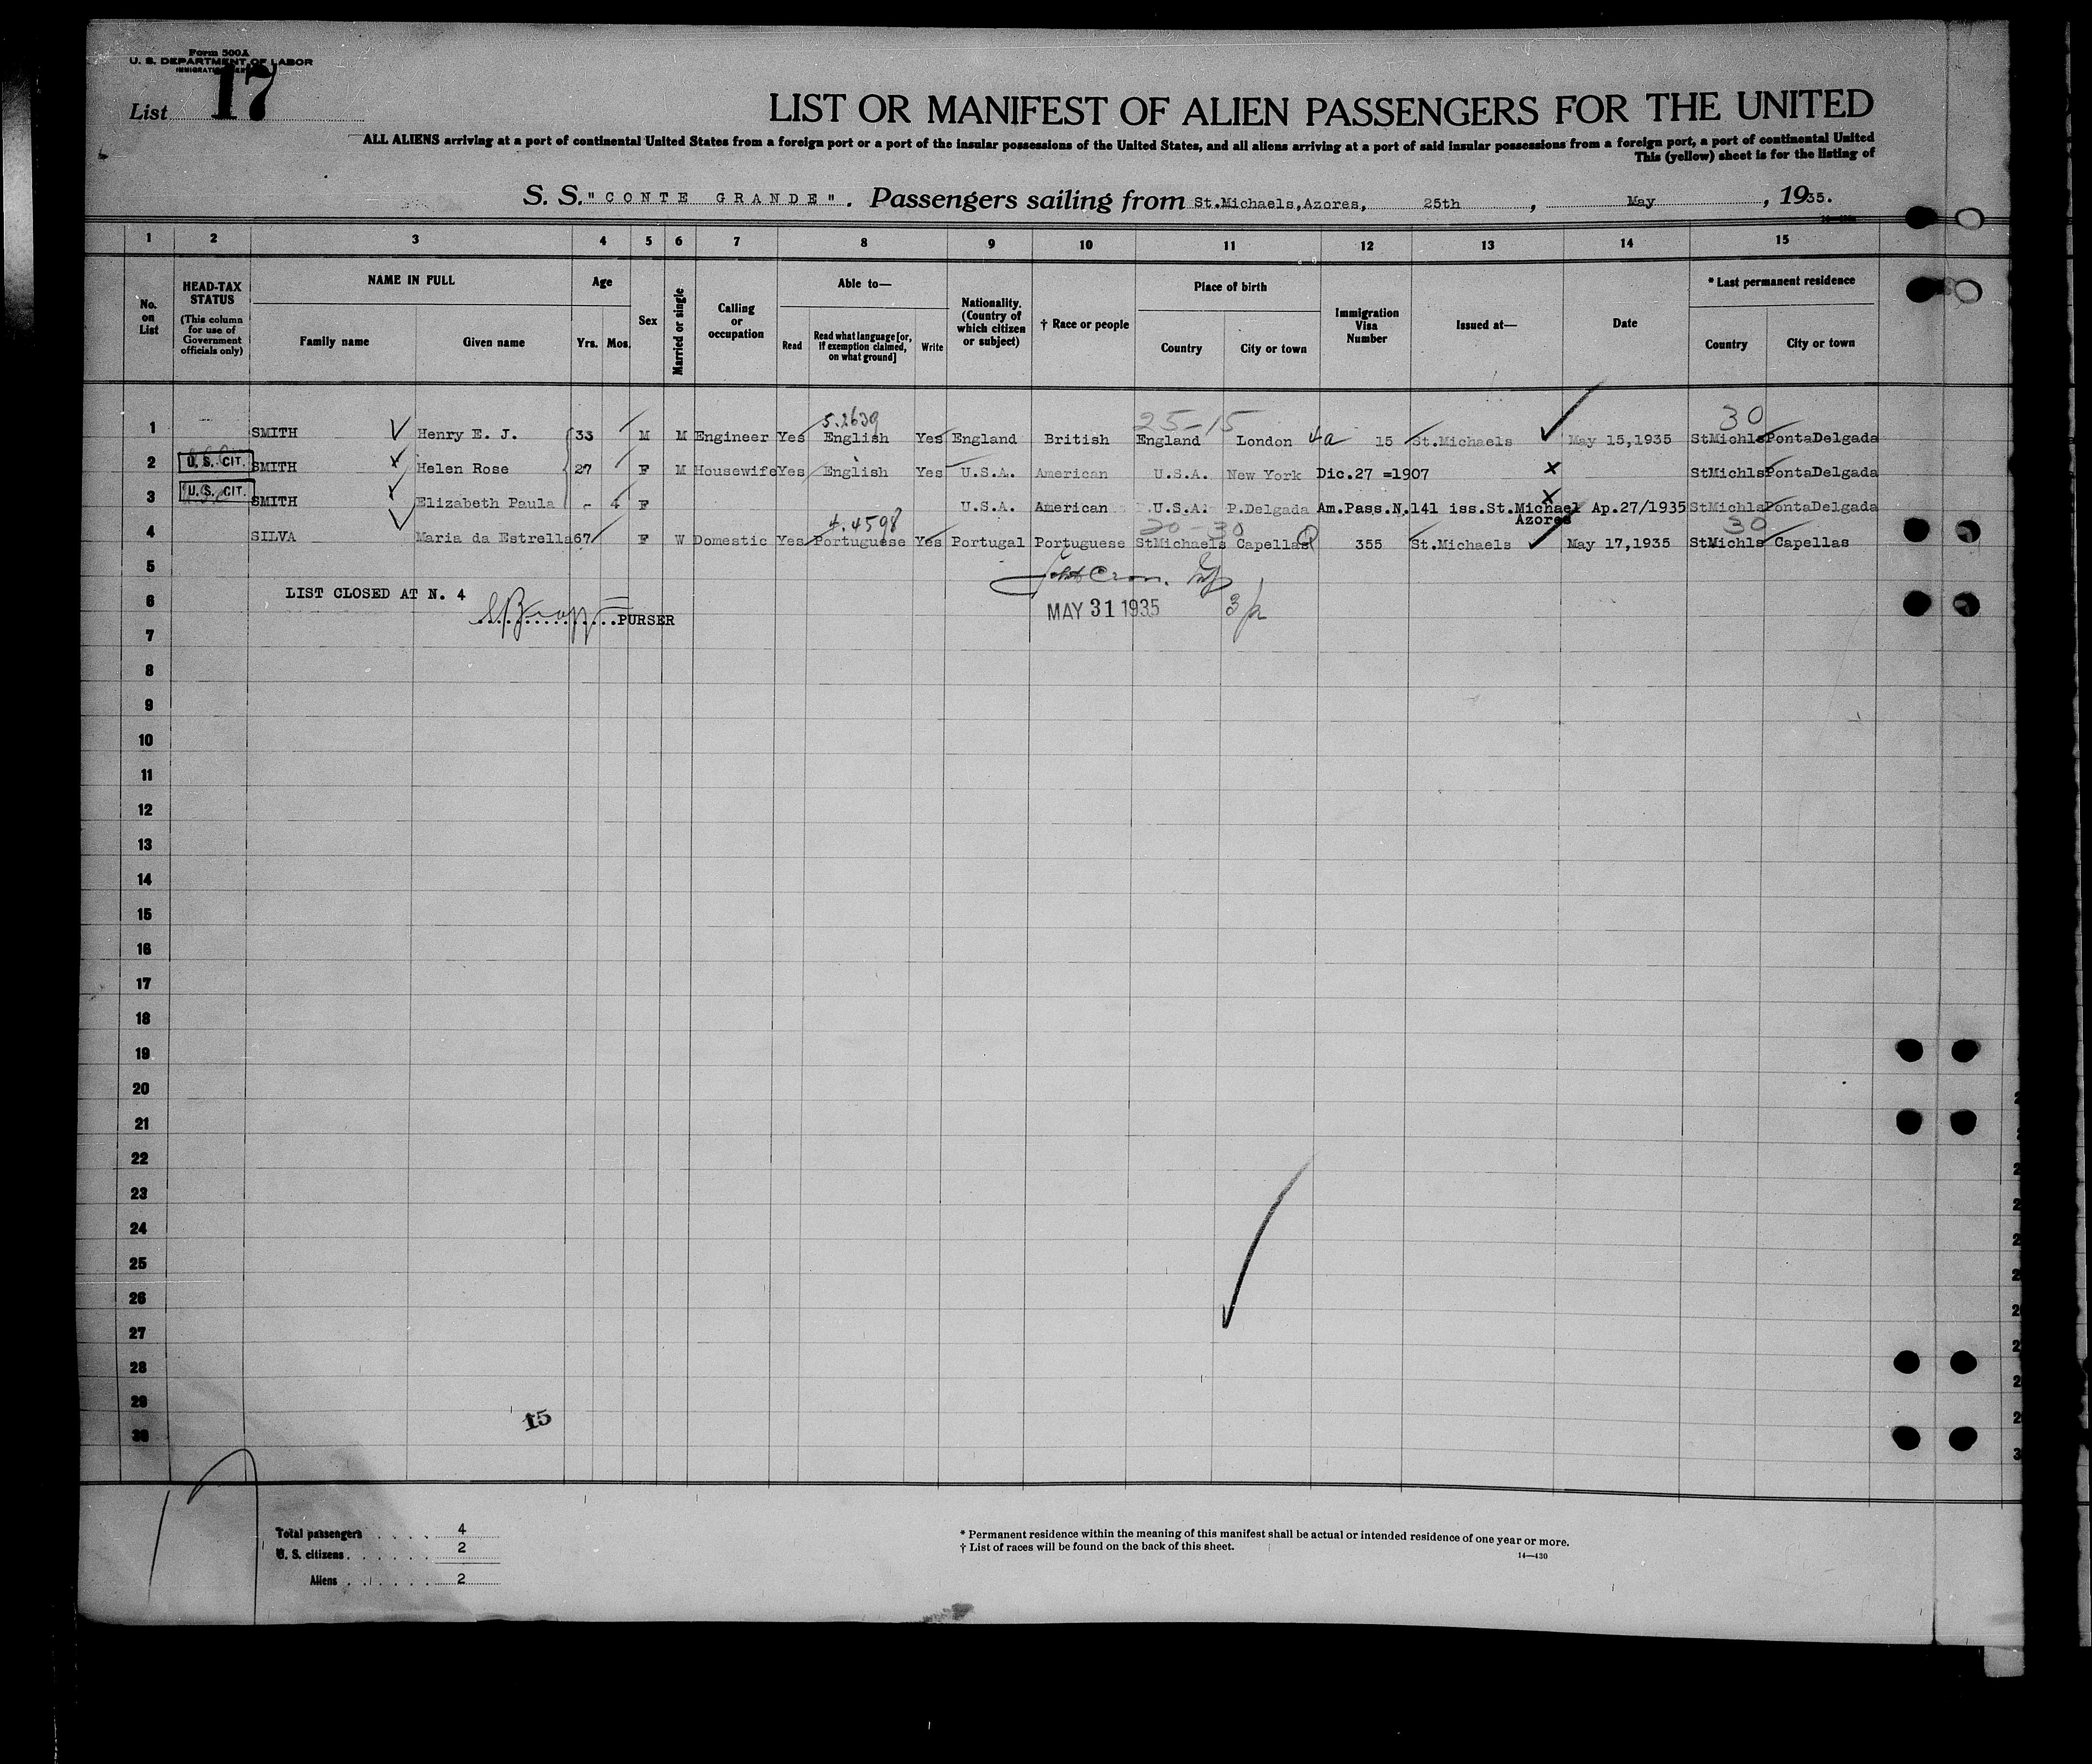 Form 500A
U. S. DEPARTMENT OF LABOR
List 17
LIST OR MANIFEST OF ALIEN PASSENGERS FOR THE UNITED
ALL ALIENS arriving at a port of continental United States from a foreign port or a port of the insular possessions of the United States, and all aliens arriving at a port of said insular possessions from a foreign port, a port of continental United
This (yellow) sheet is for the listing of
S. S. "CONTE GRANDE". Passengers sailing from St.Michaels,Azores, 25th , May , 1935.
1 2 3 4 5 6 7 8 9 10 11 12 13 14 15
No. on List
HEAD-TAX STATUS (This column for use of Government officials only)
NAME IN FULL
Family name Given name
Age
Yrs. Mos.
Sex
Married or single
Calling or occupation
Able to—
Read Read what language [or, if exemption claimed, on what ground] Write
Nationality. (Country of which citizen or subject)
† Race or people
Place of birth
Country City or town
Immigration Visa Number
Issued at—
Date
* Last permanent residence
Country City or town
5.2639 25-15 30
1 SMITH Henry E. J. 33 M M Engineer Yes English Yes England British England London 4a 15 St.Michaels May 15,1935 StMichls PontaDelgada
2 U. S. CIT. SMITH Helen Rose 27 F M Housewife Yes English Yes U.S.A. American U.S.A. New York Dic.27 =1907 x StMichls PontaDelgada
3 U. S. CIT. SMITH Elizabeth Paula - 4 F U.S.A. American U.S.A. P.Delgada Am.Pass.N.141 iss.St.Michael Azores Ap.27/1935 StMichls PontaDelgada
4.4598 20-30 30
4 SILVA Maria da Estrella 67 F W Domestic Yes Portuguese Yes Portugal Portuguese StMichaels Capellas 355 St.Michaels May 17,1935 StMichls Capellas
5
6 LIST CLOSED AT N. 4
MAY 31 1935
PURSER
7
8
9
10
11
12
13
14
15
16
17
18
19
20
21
22
23
24
25
26
27
28
29
30
15
17
Total passengers 4
U. S. citizens 2
Aliens 2
* Permanent residence within the meaning of this manifest shall be actual or intended residence of one year or more.
† List of races will be found on the back of this sheet.
14—430